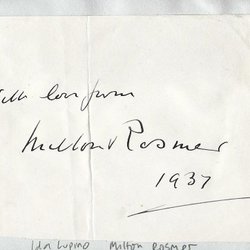 With love from
Milton Rosmer
1937
Ida Lupino Milton Rosmer